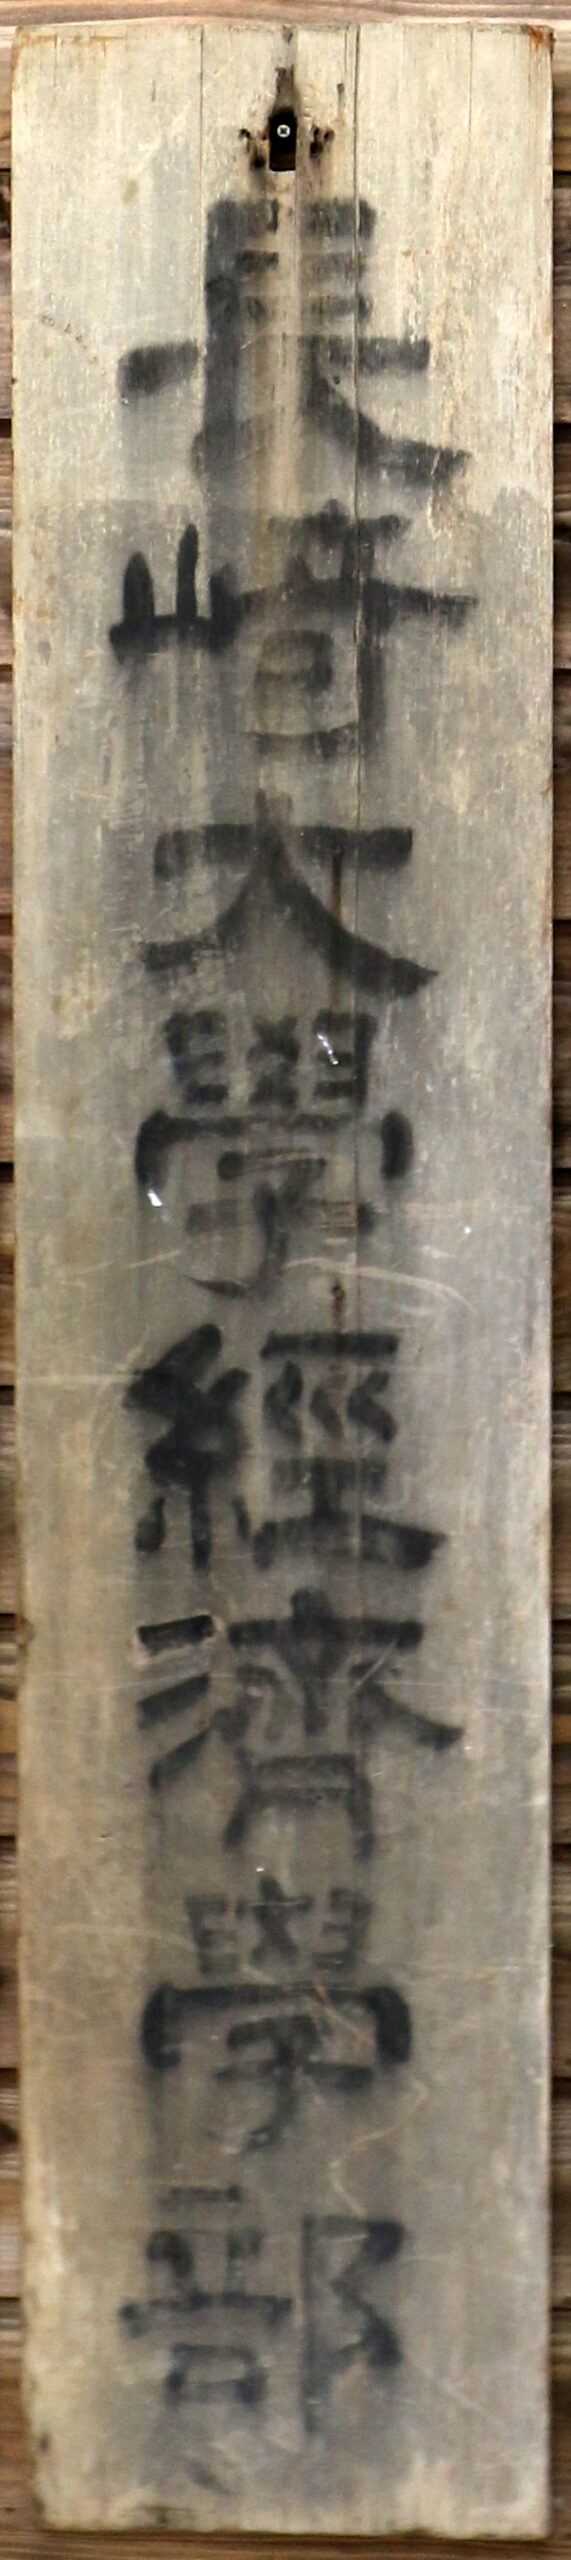 長崎大學經濟學部